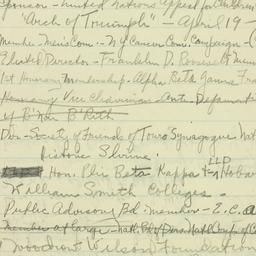 Sponsor - United Nations Appeal for Children
"Arch of Triumph" - April 19 -
Member - Men's Com. - N Y Cancer Com. Campaign - (
Elected Director - Franklin D. Roosevelt Mem
1st Honorary Membership - Alpha Beta Gamma Frat
Honorary Vice Chairman Anti-Defamation
of B'nai B'rith
Don - Society of Friends of Touro Synagogue Nat
Historic Shrine
Hon. Phi Beta Kappa Hobar
LLD
William Smith Colleges -
Public Advisory Bd member - E.C.A
Member at large - Natl.
Woodrow Wilson Foundation